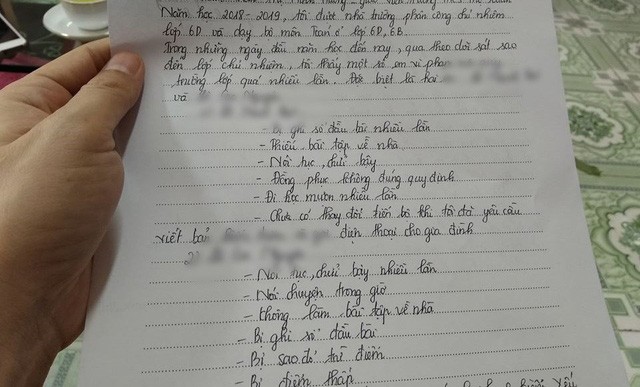 Năm học 2018 - 2019, tôi được nhà trường phân công chủ nhiệm
lớp 6D và dạy bộ môn Toán ở lớp 6D, 6B.
Trong những ngày đầu năm học đến nay, qua theo dõi sát sao
đến lớp chủ nhiệm, tôi thấy một số em vi phạ
trường lớp quá nhiều lần. Đặc biệt là hai
và
- Bị ghi sổ đầu bài nhiều lần
- Thiếu bài tập về nhà
- Nói tục, chửi bậy
- Đồng phục không đúng quy định
- Đi học muộn nhiều lần
- Chưa có thay đổi tiến bộ khi tôi đã yêu cầu
viết bả điện thoại cho gia đình
- Nói tục, chửi bậy nhiều lần
- Nói chuyện trong giờ
- Không làm bài tập về nhà
- Bị ghi sổ đầu bài
- Bị sao đỏ trừ điểm
- Bị điểm thấp